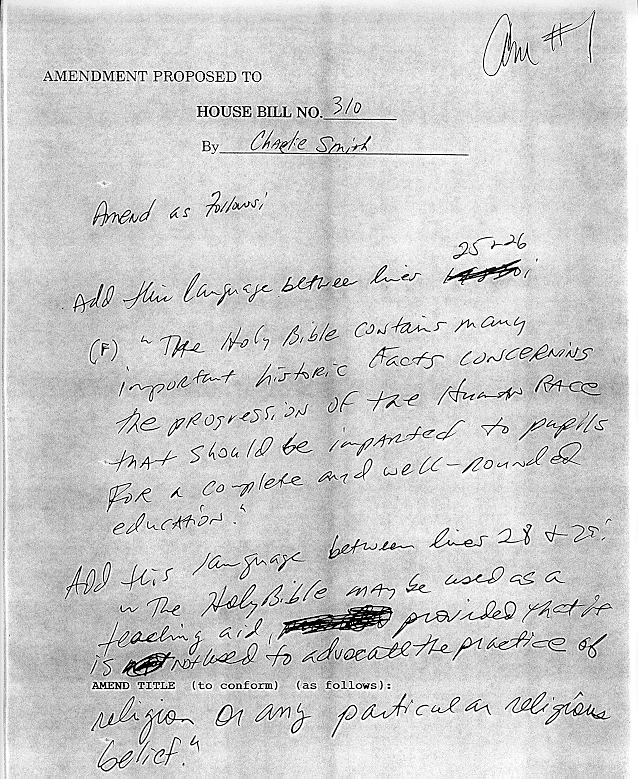 Am #1
AMENDMENT PROPOSED TO
HOUSE BILL NO. 310
By Charlie Smith
Amend as follows;
25 & 26
Add this language between lines ;
(F) " The Holy Bible contains many
important historic facts concerning
the progression of the Human Race
that should be imparted to pupils
for a complete and well-rounded
education."
Add this language between lines 28 & 29:
" The Holy Bible may be used as a
teaching aid, provided that it
is not used to advocate the practice of
AMEND TITLE (to conform) (as follows):
religion or any particular religious
belief."